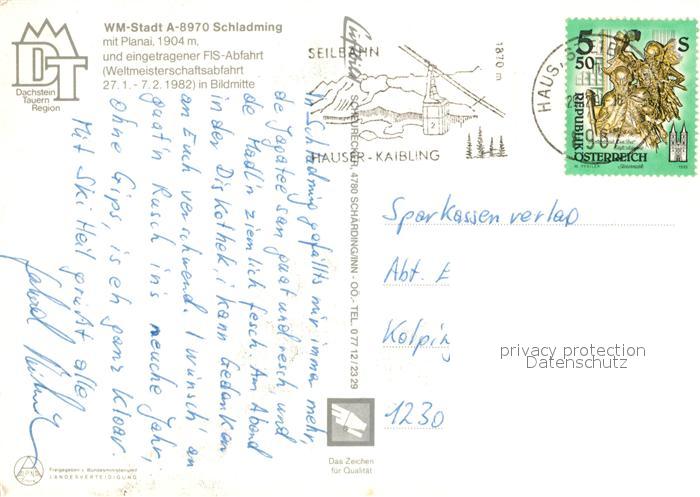 WM-Stadt A-8970 Schladming
mit Planai, 1904 m,
und eingetragener FIS-Abfahrt
(Weltmeisterschaftsabfahrt
27.1. - 7.2. 1982) in Bildmitte
DT
Dachstein
Tauern
Region
In Schladming gefällts mir imma mehr,
de Jagatee san guat und resch und
de Madl'n ziemlich fesch. Am Abend
in der Diskothek, i kann Gedanken
an Euch verschwend. I wünsch' an
guat'n Rusch in's neuche Jahr,
ohne Gips, is eh ganz kloar.
Mit Ski Heil grüßt alle
Freigegeben v. Bundesministerium f.
LANDESVERTEIDIGUNG
Luftbild
SCHEURECKER, 4780 SCHÄRDING/INN - OÖ. - TEL. 0 77 12 / 23 29
SEILBAHN
1870 m
HAUSER-KAIBLING
HAUS,
5
50
S
REPUBLIK
ÖSTERREICH
Sparkassenverlag
Abt. E
Kolping
1230
privacy protection
Datenschutz
Das Zeichen
für Qualität